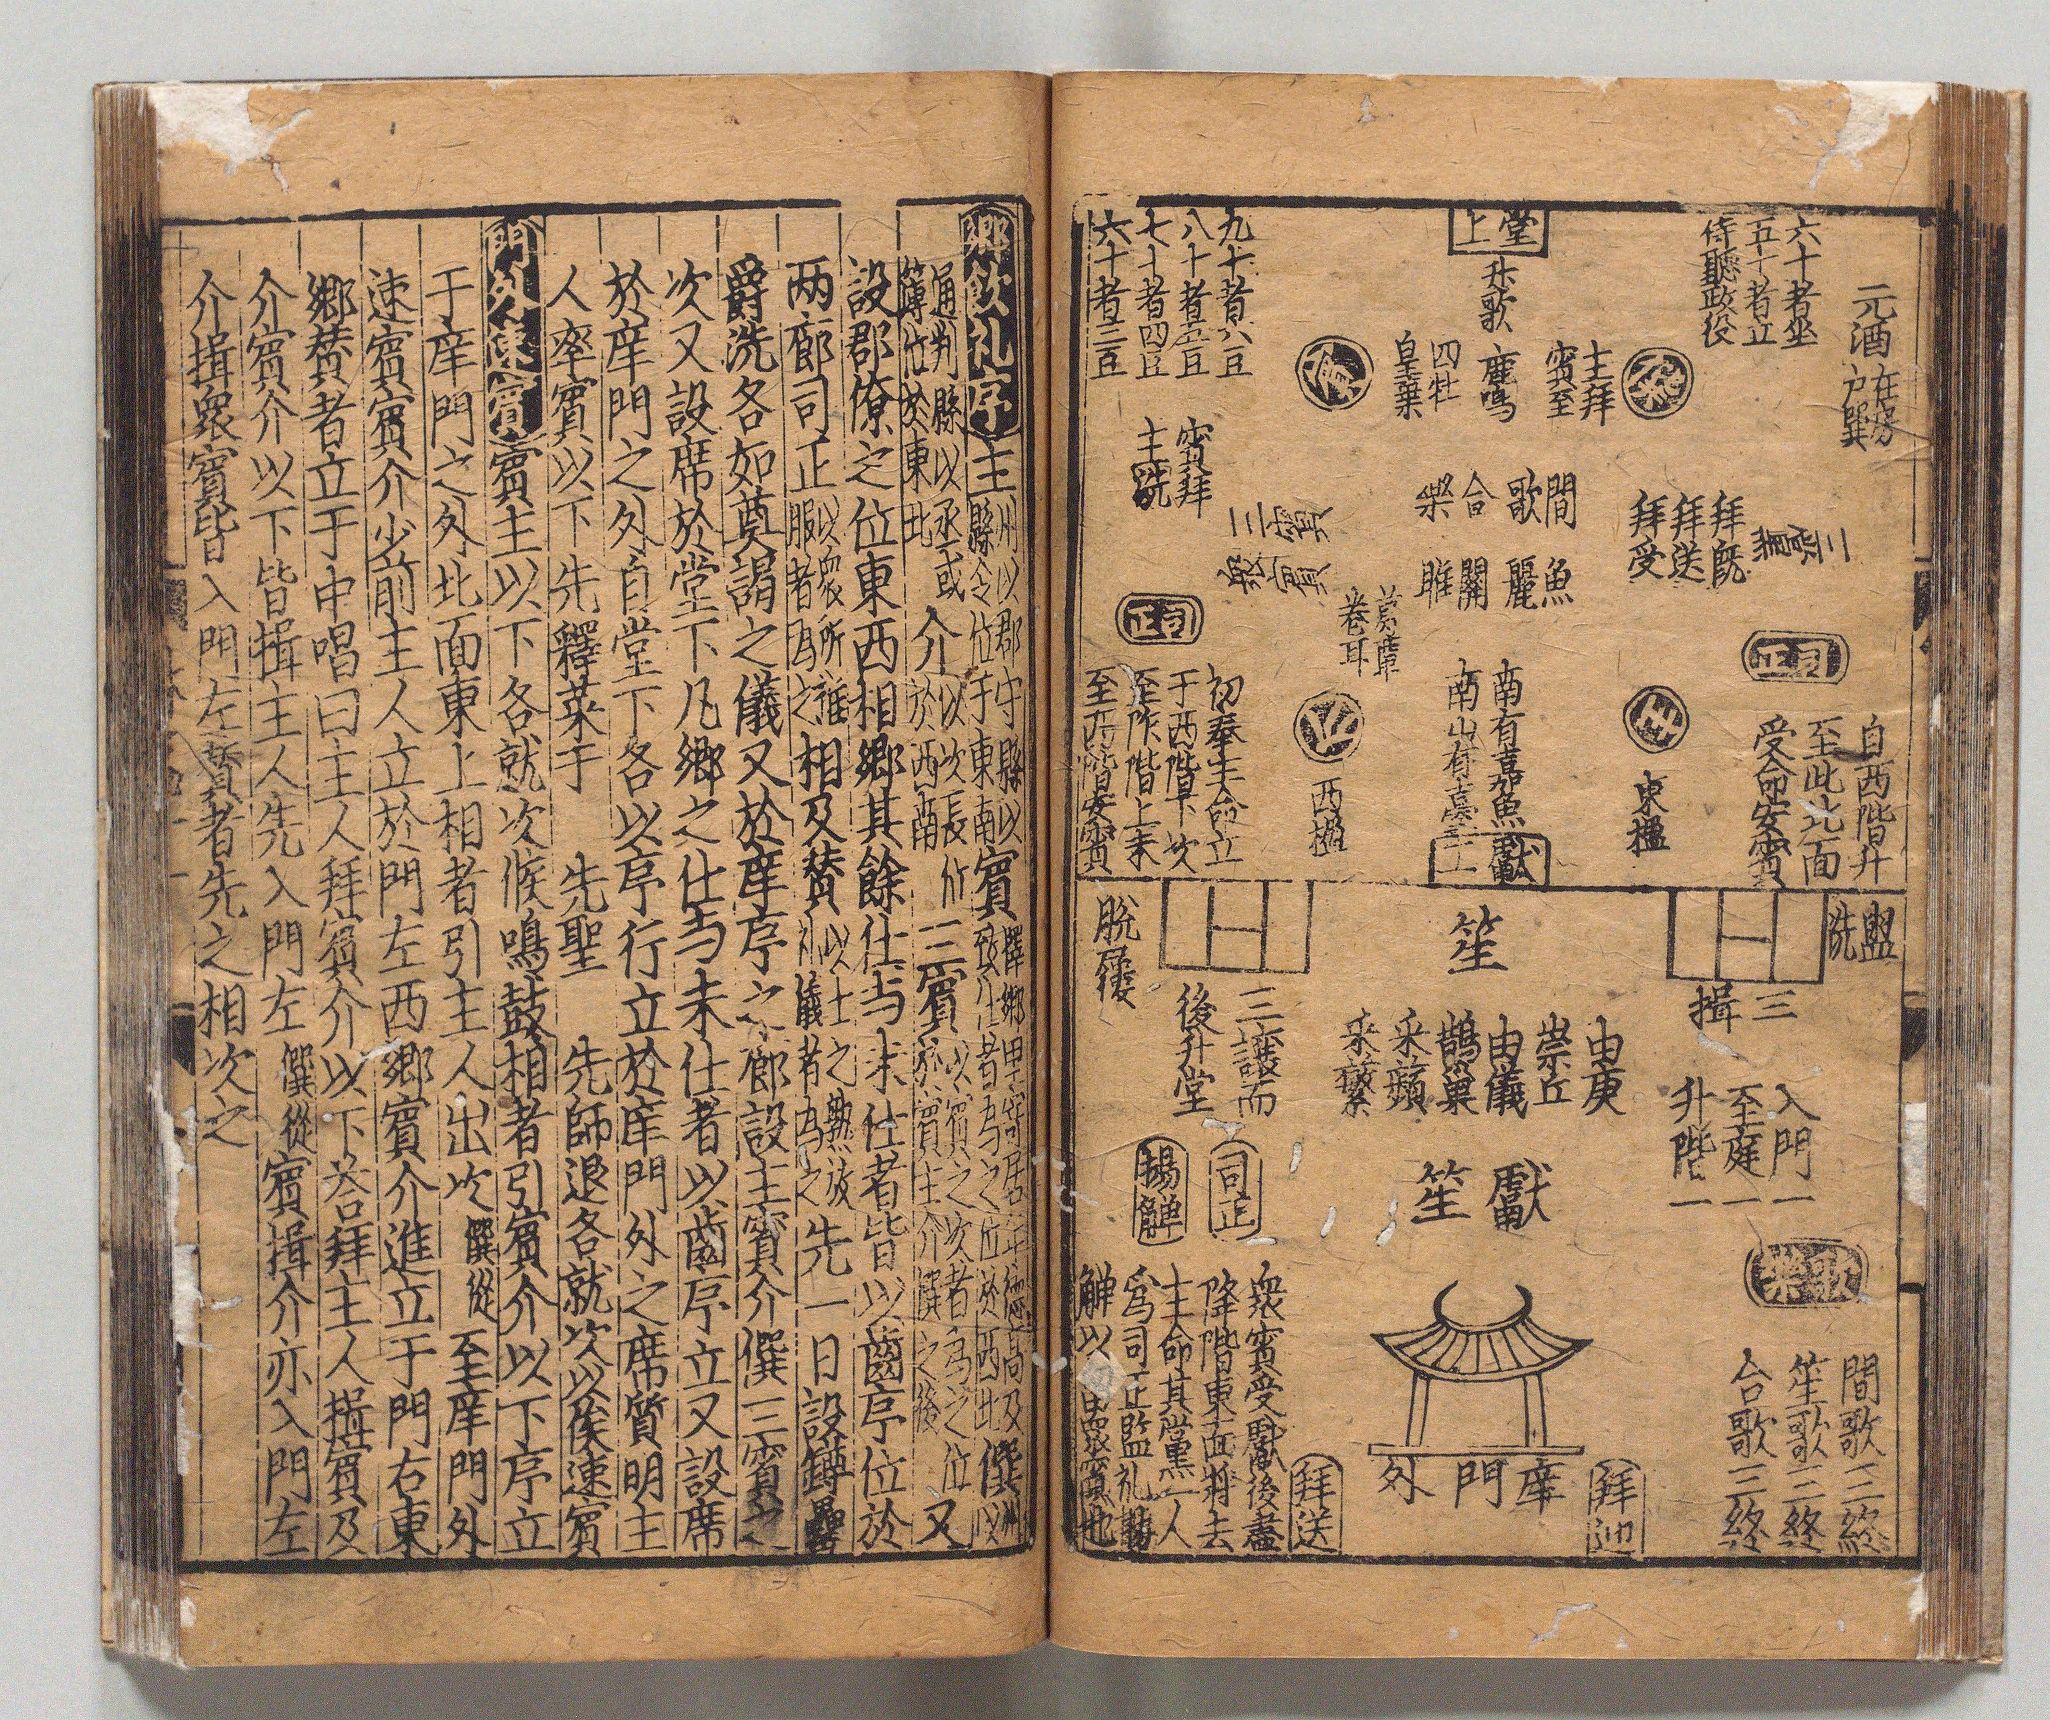 元酒在房户間
六十者坐
五十者立
侍聽政役
堂上
升歌
鹿鳴
四牡
皇華
主拜
賓至
九十者六豆
八十者五豆
七十者四豆
六十者三豆
賓拜
主洗
拜既
拜送
拜受
三賓
間歌
合樂
魚麗
關雎
葛覃
卷耳
三賓
衆賓
司正
司正
自西階升
至此北面
受命安賓
主
東楹
南有嘉魚
南山有臺
獻工
介
西楹
初奉主命立
于西階下次
至阼階上來
至西階安賓
盥洗
三揖
入門一
至庭一
升階一
笙
由庚
崇丘
由儀
鵲巢
采蘋
采蘩
獻笙
三讓而
後升堂
脫屨
司正
揚觶
歌樂
間歌三終
笙歌三終
合歌三終
拜迎
庠門外
拜送
衆賓受獻後盡
降階東面將去
主命其黨一人
爲司正監礼揚
觶以
鄉飲礼序主州以郡守縣以縣令位于東南賓擇鄉里寄居年德高及致仕者為之位於西北僎以州
通判縣以丞或簿位於東北介以次長位於西南三賓以賓之次者為之位於賓主介僎之後又
設郡僚之位東西相鄉其餘仕与未仕者皆以齒序位於
两廊司正以衆所推服者為之相及賛以士之熟於礼儀者為之先一日設罇罍
爵洗各如奠謁之儀又於庠序之廊設主賓介僎三賓之
次又設席於堂下凡鄉之仕与未仕者以齒序立又設席
於庠門之外自堂下各以序行立於庠門外之席質明主
人率賓以下先釋菜于 先聖 先師退各就次以俟速賓
門外速賓賓主以下各就次候鳴鼓相者引賓介以下序立
于庠門之外北面東上相者引主人出次僎從至庠門外
速賓賓介少前主人立於門左西鄉賓介進立于門右東
鄉賛者立于中唱曰主人拜賓介以下荅拜主人揖賓及
介賓介以下皆揖主人先入門左僎從賓揖介亦入門左
介揖衆賓皆入門左賛者先之相次之